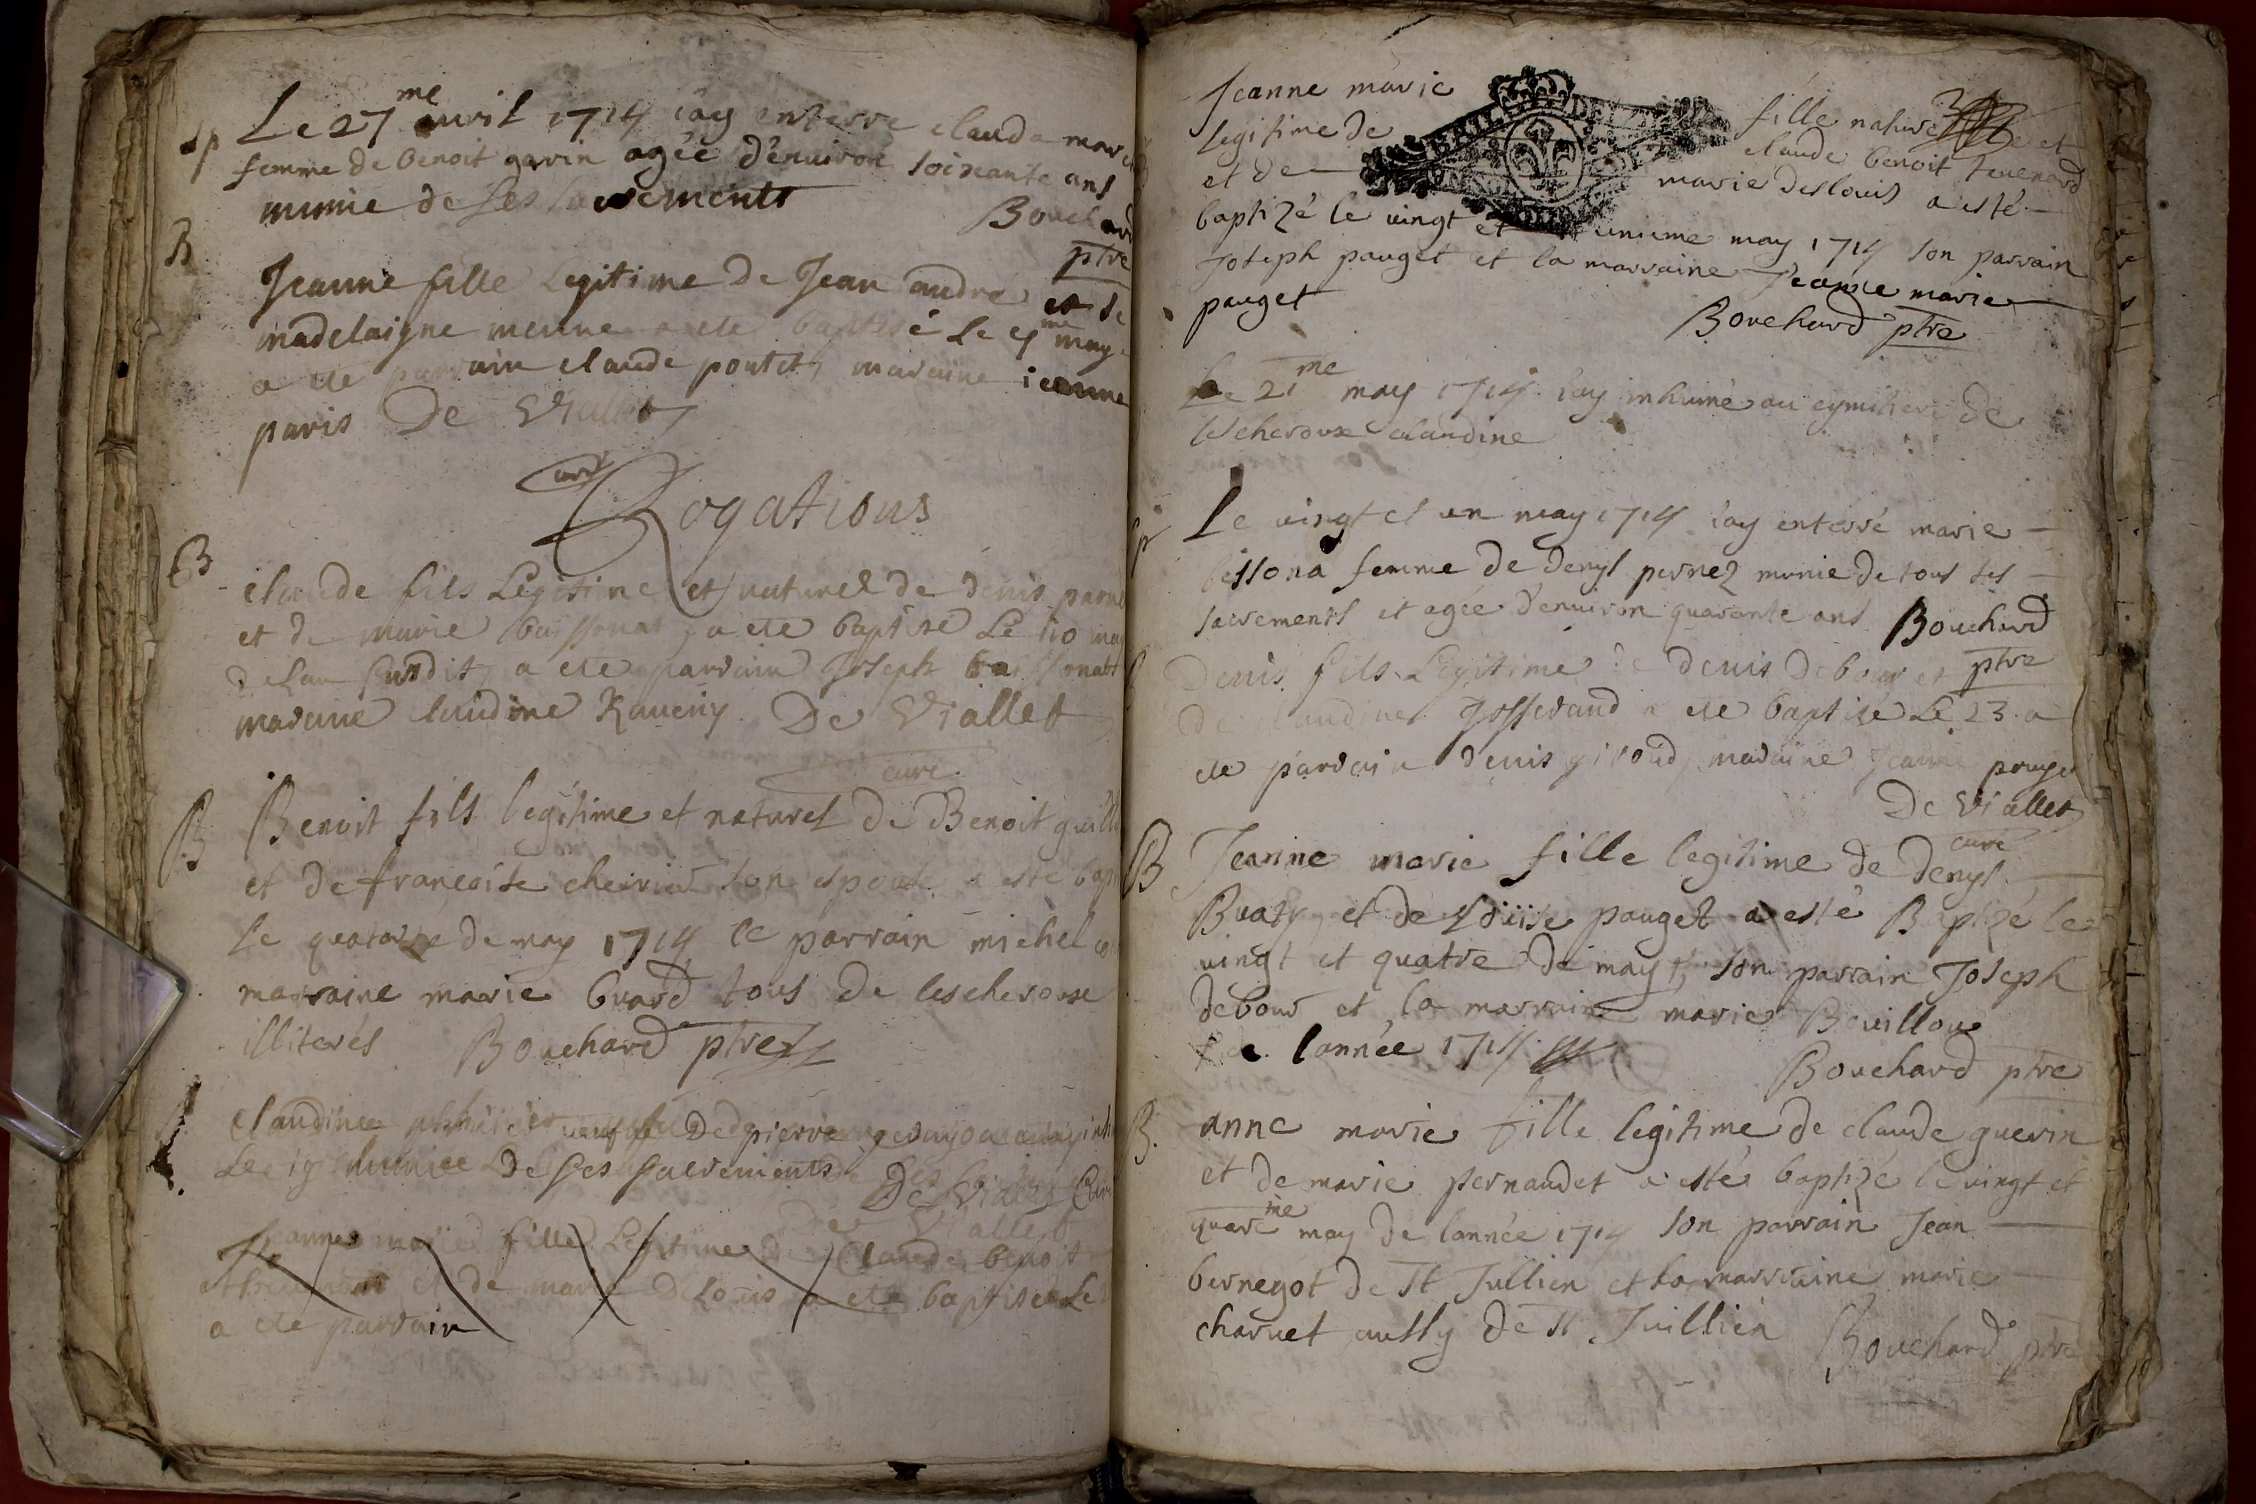 Sp
Le 27me avril 1714 i'ay enterre clauda
femme de benoit gavin agée d'environ soixante ans
munie de ses sacrements
Bouchard
ptre
B
Jeanne fille Legitime de Jean andre et de
madelaigne a ete baptisé Le may
a ete parrain claude poutet, maraine ieanne
paris De Viallet
curé
Rogations
B
claude fils Legitime et naturel de denis
et de marie a ete baptisé Le 10
de lan susdit, a ete parrain Joseph
maraine claudine De Viallet
curé
B
Benoit fils legitime et naturel de Benoit
et de francoise son espouse a esté
Le quatorze de may 1714 le parrain michel
marraine marie buard tous de lescheroux
illiterés Bouchard ptre
claudine veufve De pierre
Le munie De Ses Sacrements De Viallet Curé
De Viallet
Jeanne marie fille Legitime de Claude benoit
et de marie a ete baptisée Le
a ete parrain
Jeanne marie fille naturelle et
legitime de claude benoit
et de marie Deslouis a esté
baptizé le vingt et unieme may 1714 son parrain
Joseph pauget et la marraine Jeanne marie
pauget
Bouchard ptre
Le 21me may 1714 i'ay inhumé au cymitiere de
lescheroux claudine
Le vingt et un may 1714 i'ay enterré marie
femme de denys pernez munie de tous ses
sacrements et agée d'environ quarante ans Bouchard
ptre
Denis fils Legitime de denis debour et
de claudine Josserand a ete baptisé Le 23 a
ete parrain denis giroud, maraine Jeanne
De Viallet
curé
B
Jeanne marie fille legitime de denys
et de Loüise pauget a esté Baptizé le
vingt et quatre de may, son parrain Joseph
debour et la marraine marie
de l'année 1714
Bouchard ptre
B.
anne marie fille legitime de claude guerin
et de marie pernaudet a esté baptizé le vingt et
quatrme may de lannée 1714 son parrain Jean
bernegot de St Jullien et la marraine marie
charvet aussy de St Juillien Bouchard ptre